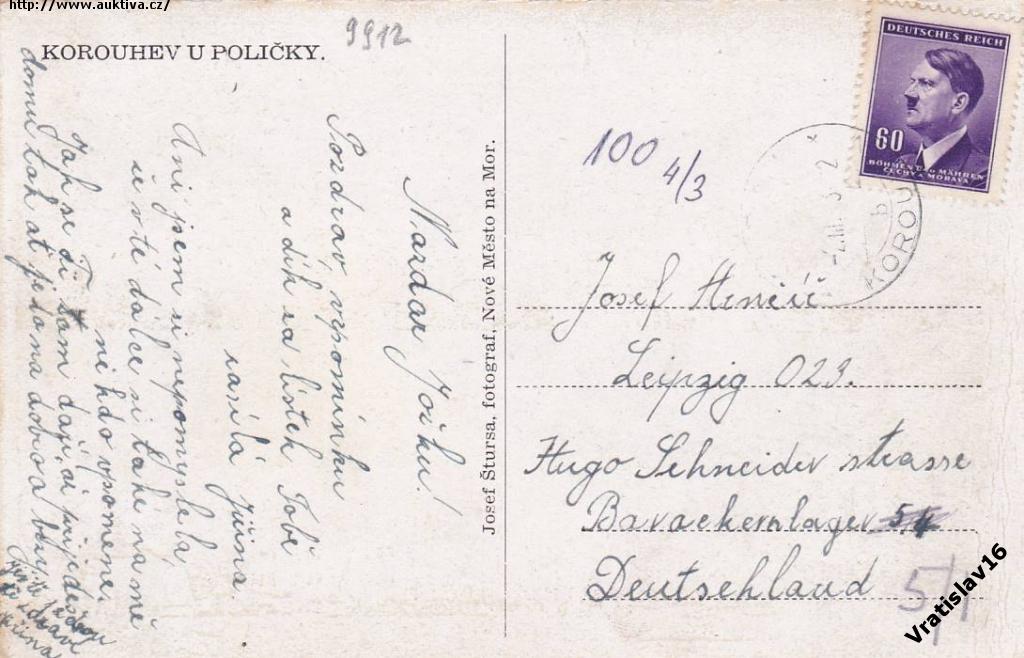 http://www.auktiva.cz/
KOROUHEV U POLIČKY.
9912
Nazdar Jožku!
Pozdrav, vzpomínku
a dík za lístek Tobě
zasílá Jiřina.
Ani jsem si nepomyslela,
že v té dálce si také na mě
někdo vzpomene.
Jak se Ti tam daří, a přijdeš
domu tak ať je to na dobro
Jiřina
Josef Štursa, fotograf, Nové Město na Mor.
DEUTSCHES REICH
60
BÖHMEN UND MÄHREN
ČECHY A MORAVA
KOROU
100 4/3
Josef
Leipzig 023.
Hugo Schneider strasse
Barackenlager
Deutschland
5/
Vratislav16